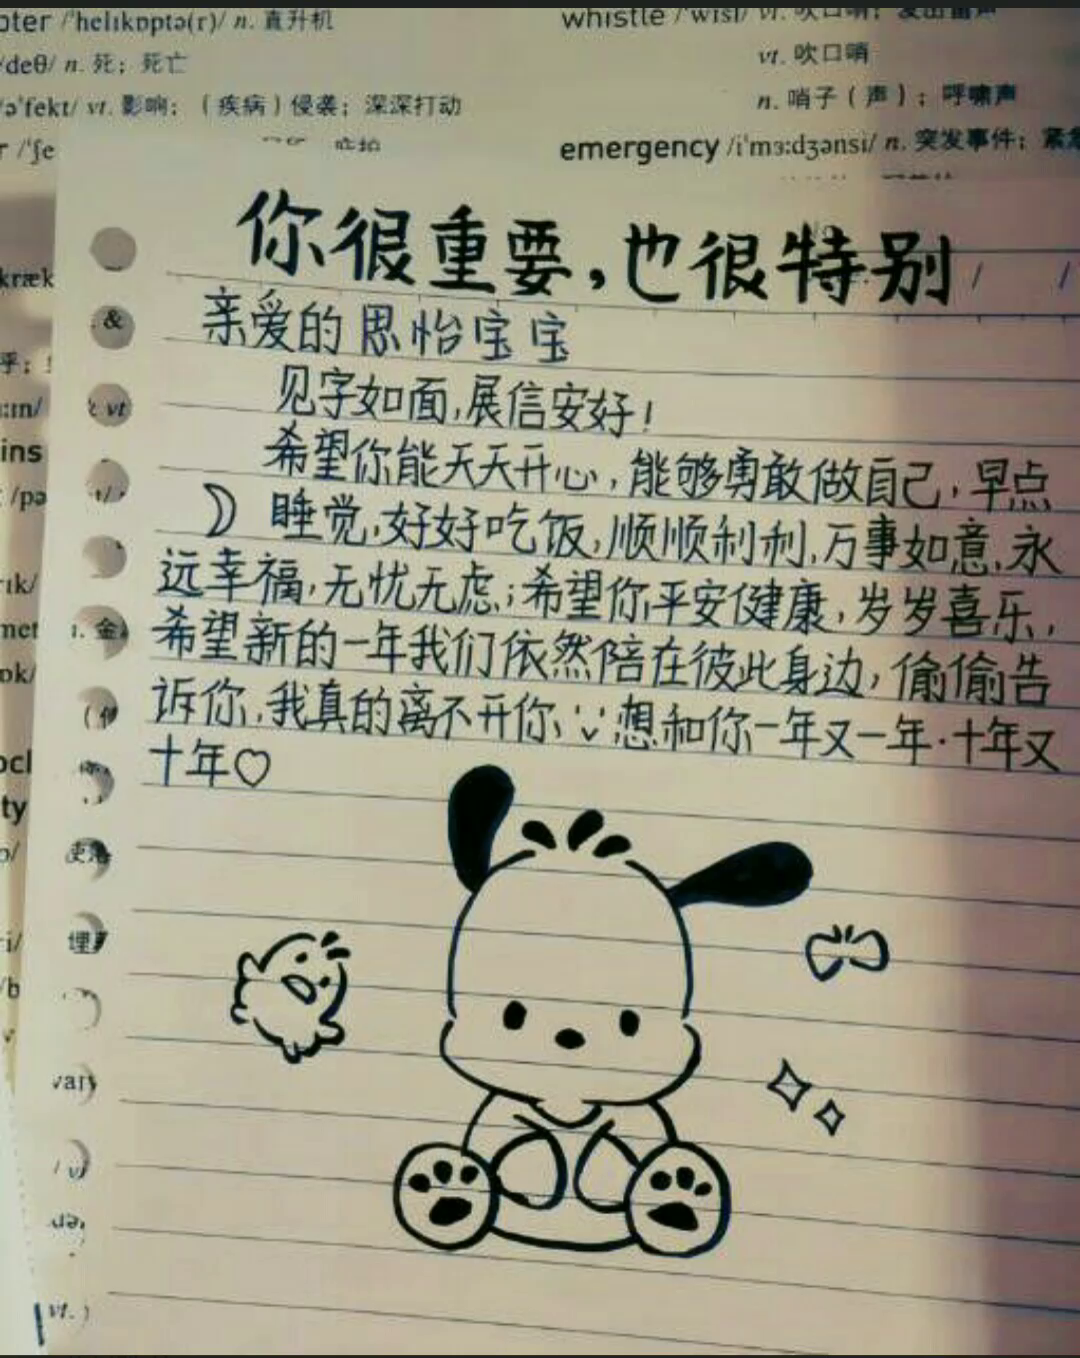 /ˈhelɪkɒptə(r)/ n. 直升机
/deθ/ n. 死；死亡
/əˈfekt/ vt. 影响；（疾病）侵袭；深深打动
whistle /ˈwɪsl/ vi. 吹口哨；发出
vt. 吹口哨
n. 哨子（声）；呼啸声
emergency /iˈmɜːdʒənsi/ n. 突发事件；
你很重要,也很特别
亲爱的思怡宝宝
见字如面,展信安好!
希望你能天天开心,能够勇敢做自己,早点
睡觉,好好吃饭,顺顺利利,万事如意,永
远幸福,无忧无虑;希望你平安健康,岁岁喜乐,
希望新的一年我们依然陪在彼此身边,偷偷告
诉你,我真的离不开你想和你一年又一年·十年又
十年♡